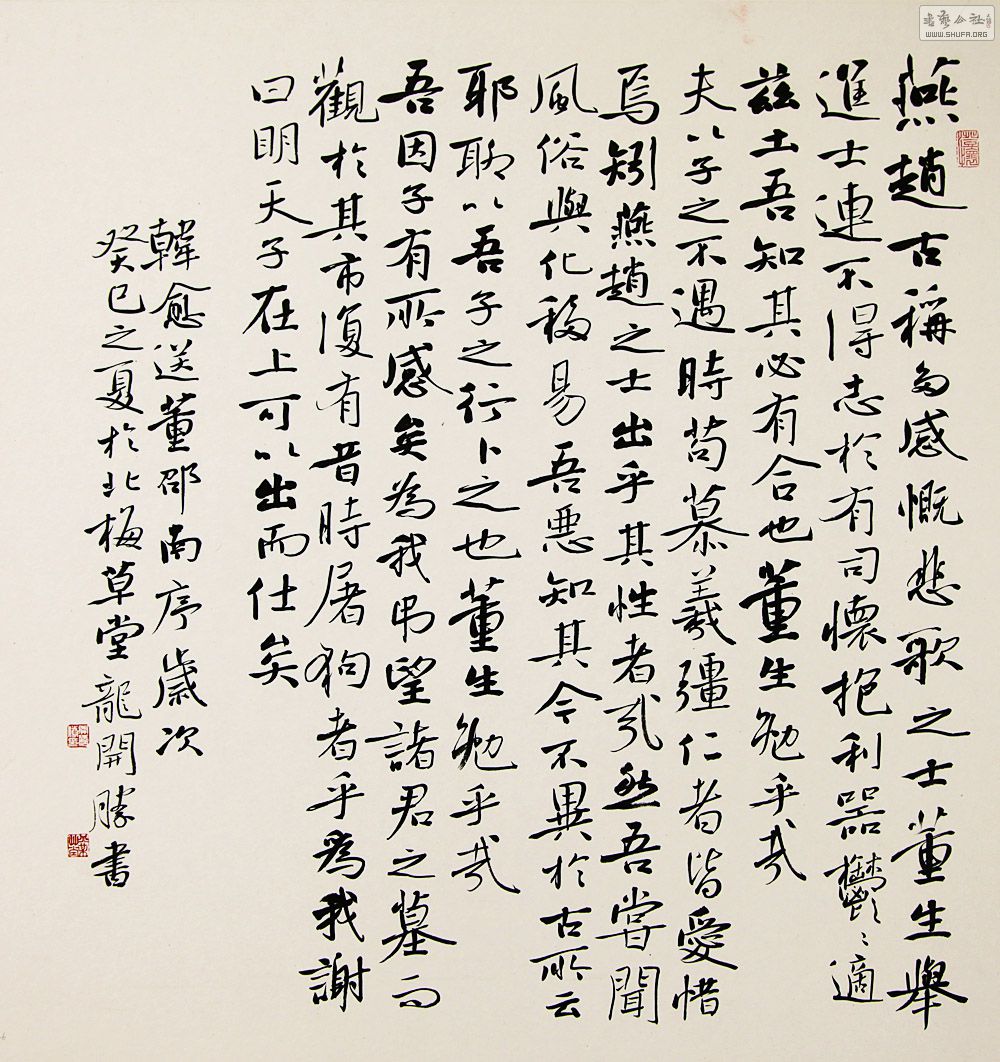 燕趙古稱多感慨悲歌之士董生舉
進士連不得志於有司懷抱利器鬱〻適
茲土吾知其必有合也董生勉乎哉
夫以子之不遇時苟慕義彊仁者皆愛惜
焉矧燕趙之士出乎其性者哉然吾嘗聞
風俗與化移易吾惡知其今不異於古所云
耶聊以吾子之行卜之也董生勉乎哉
吾因子有所感矣為我吊望諸君之墓而
觀於其市復有昔時屠狗者乎為我謝
曰明天子在上可以出而仕矣
韓愈送董邵南序歲次
癸巳之夏於北梅草堂龍開勝書
WWW.SHUFA.ORG